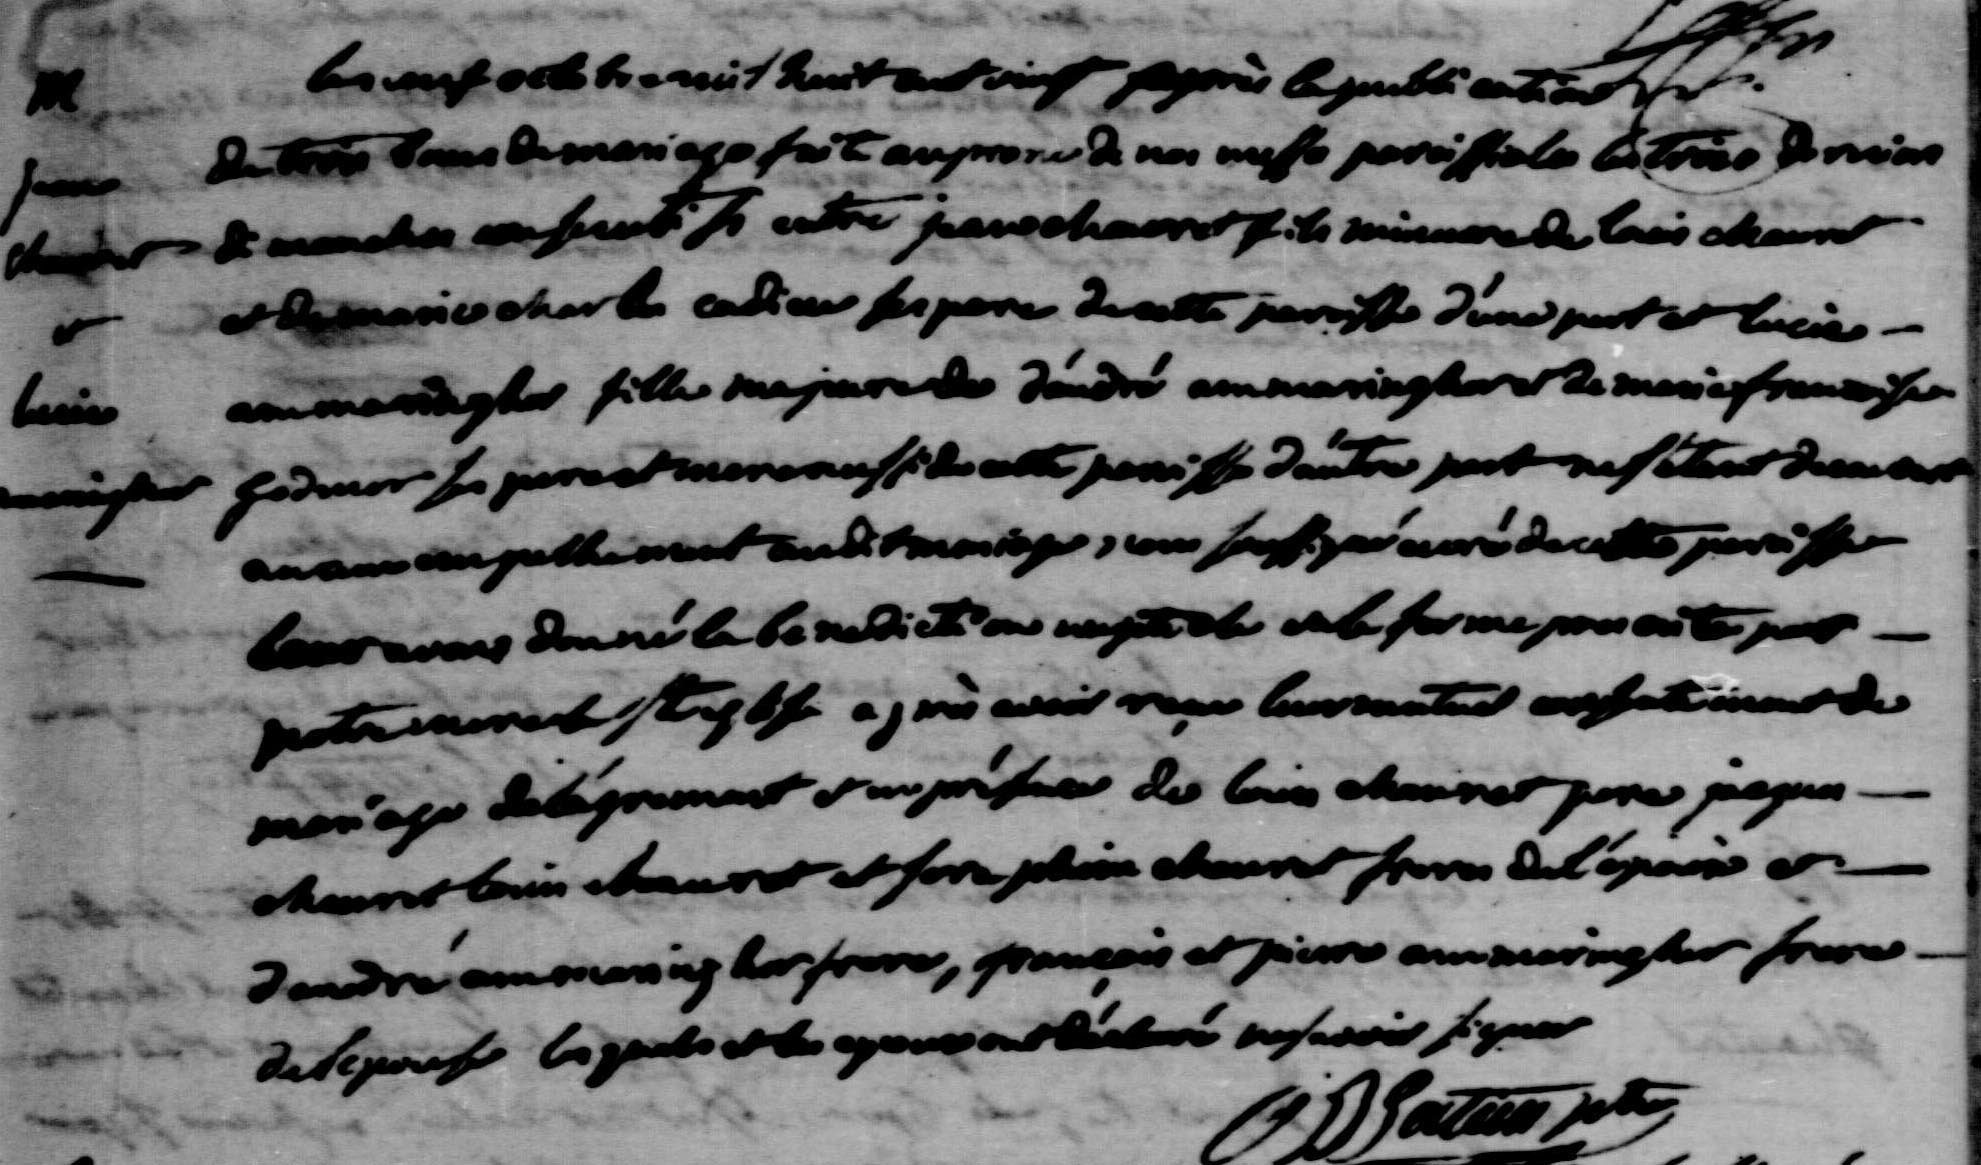 M
jean
chauret
et
lucie
maringher
le neuf octobre mil huit cent vingt après la publication
de trois bans de mariage faite au prone de nos messes paroissiales les trois derniers
dimanches consecutifs entre jean chauret fils mineure de louis chauret
et de marie charles cadieu ses pere de cette paroisse d'une part et lucie
ammaringher fille majeure de d'andré ammaringher et de marie françoise
Godmer ses pere et mere aussi de cette paroisse d'autre part ne s'étant decouvert
aucun empechement audit mariage, nous soussigné curé de cette paroisse
leur avons donné la benediction nuptiale en la forme prescrite par
notre mere la ste eglise après avoir reçu leur mutuel consentement de
mariage de l'agrement et en présence de louis chauret pere jaques
chauret louis chauret et seraphin chauret freres de l'époux et
d'andré ammaringher frere, françois et pierre ammaringher frere
de l'epouse lesquels et les epoux ont déclaré ne savoir signer
ptre